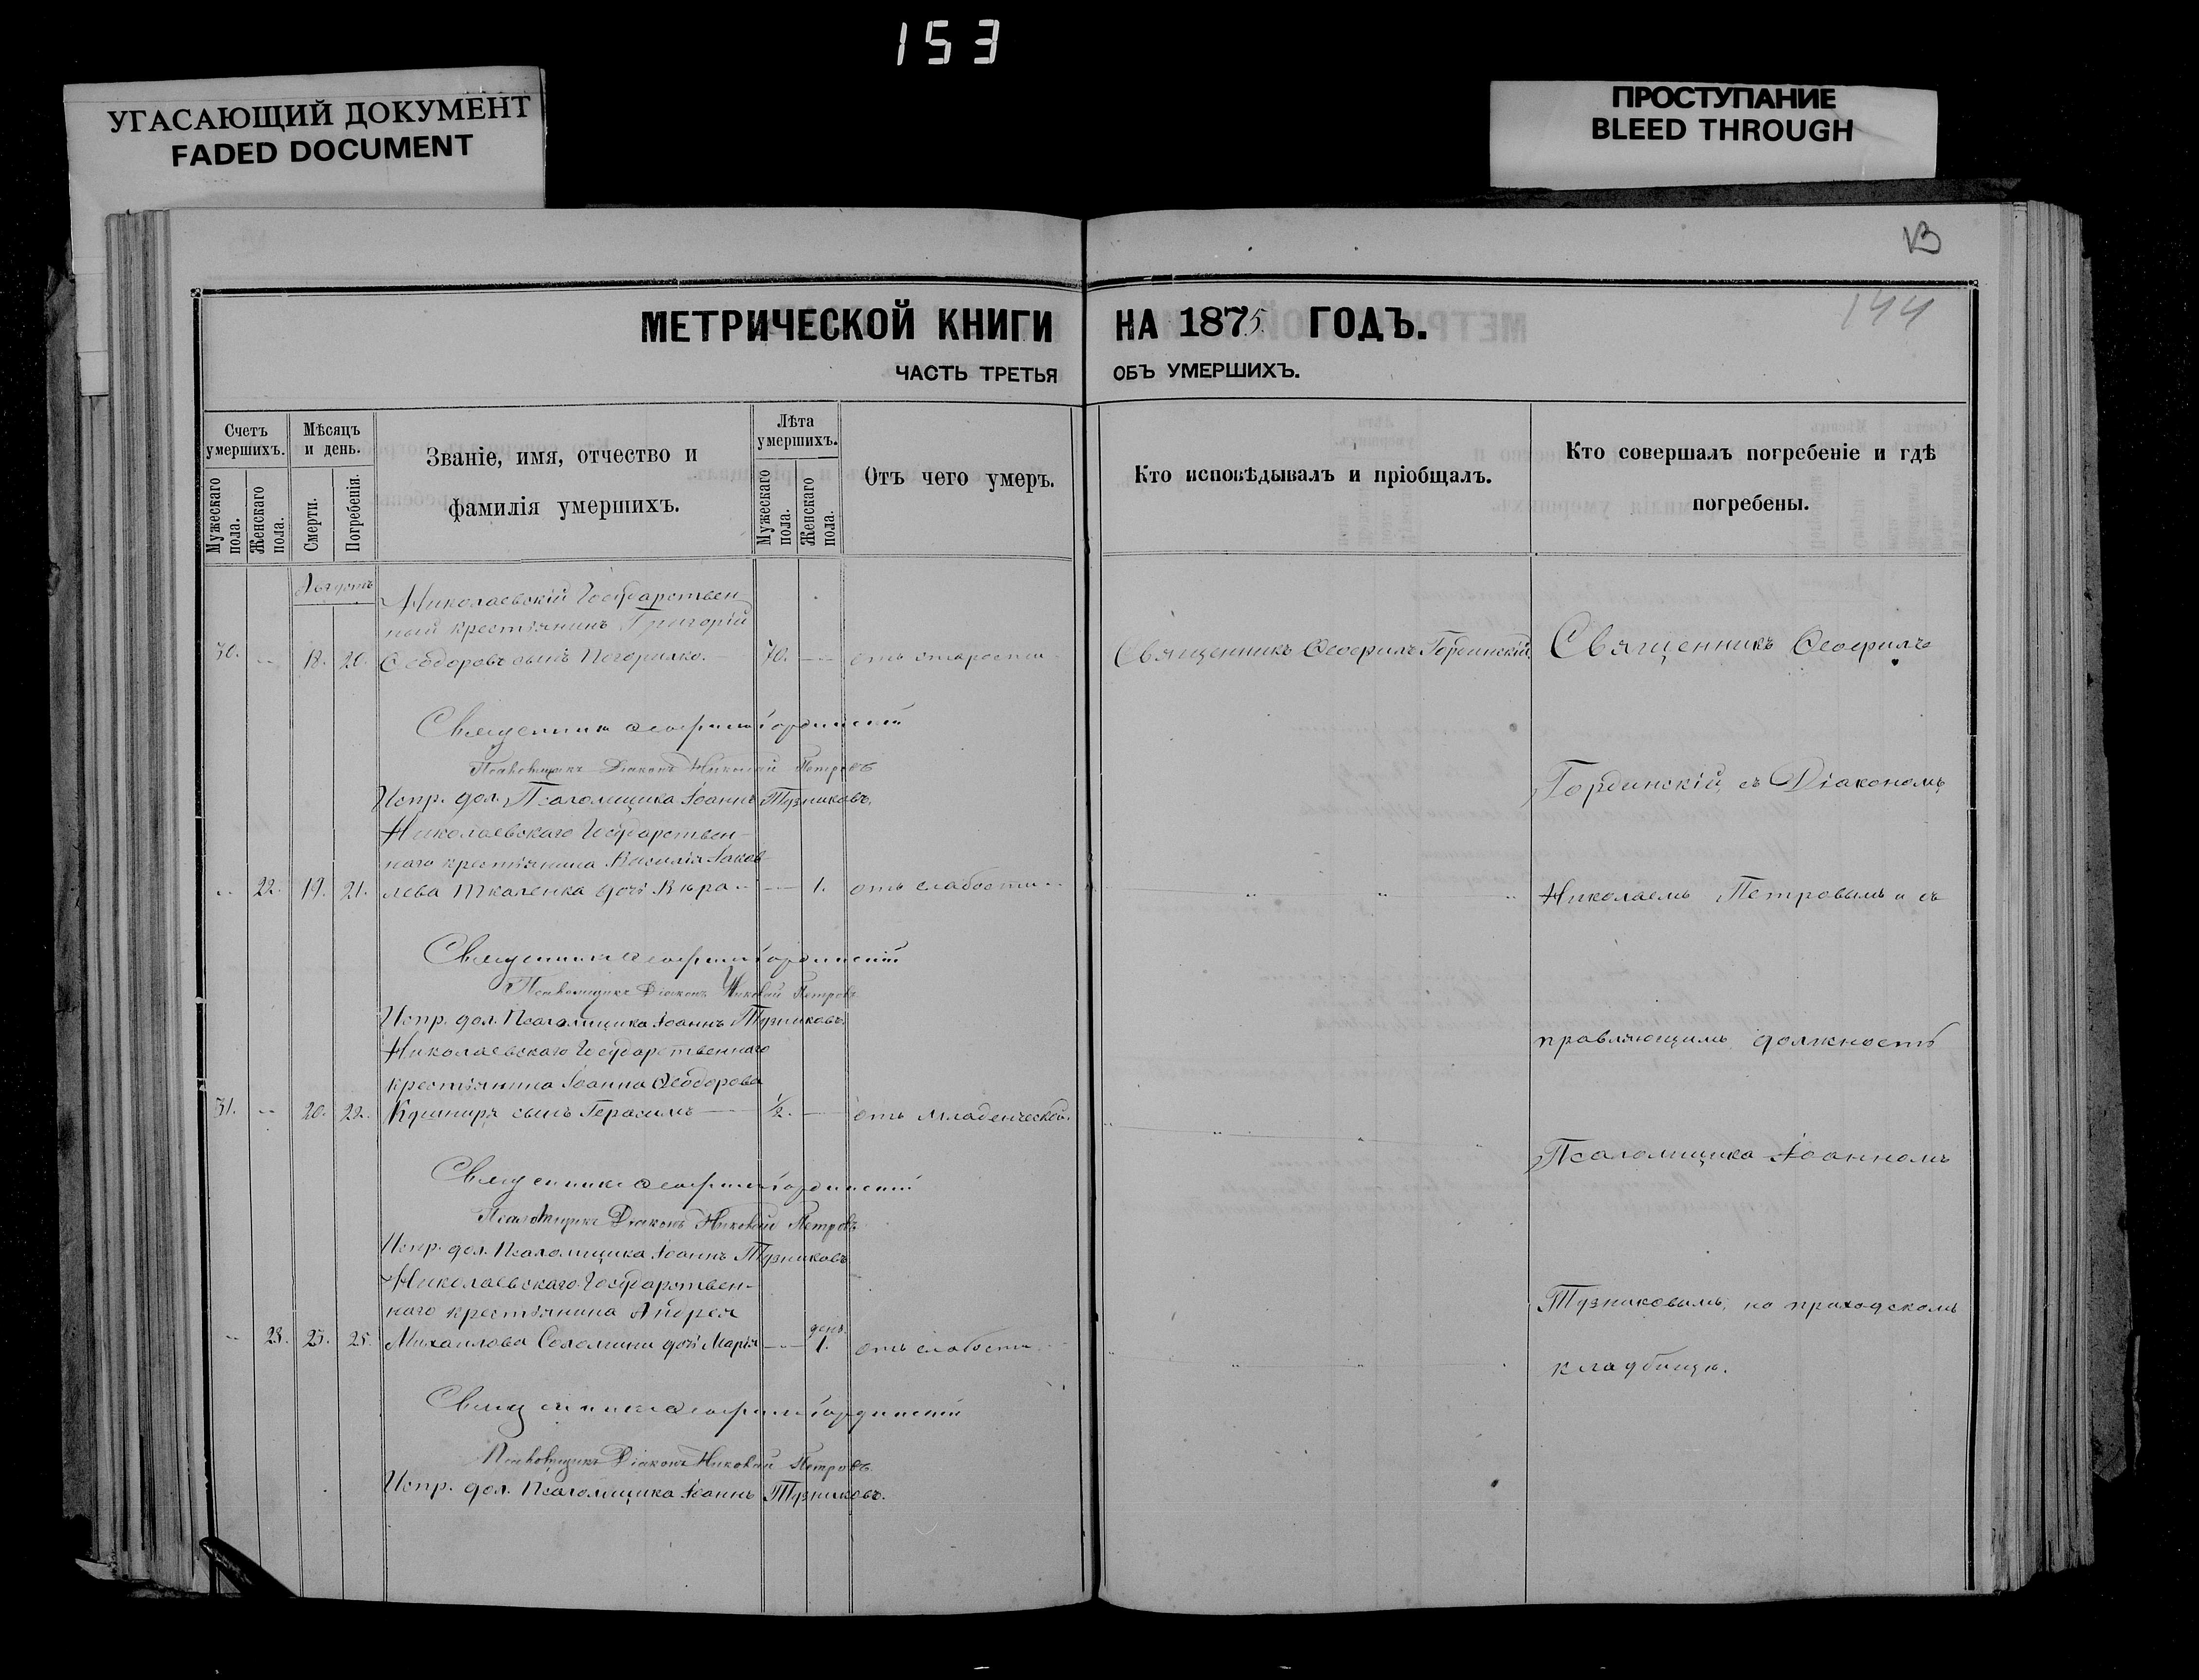 153
УГАСАЮЩИЙ ДОКУМЕНТ
FADED DOCUMENT
ПРОСТУПАНИЕ
BLEED THROUGH
144
МЕТРИЧЕСКОЙ КНИГИ НА 1875 ГОДЪ.
ЧАСТЬ ТРЕТЬЯ ОБЪ УМЕРШИХЪ.
Счетъ умершихъ.
Мужескаго пола.
Женскаго пола.
Мѣсяцъ и день.
Смерти.
Погребенія.
Званіе, имя, отчество и
фамилія умершихъ.
Лѣта умершихъ.
Мужескаго пола.
Женскаго пола.
Отъ чего умеръ.
Кто исповѣдывалъ и пріобщалъ.
Кто совершалъ погребеніе и гдѣ
погребены.
Августъ
Николаевскій Государствен
ный крестьянинъ Григорій
30. 18. 20. Ѳеодоровъ сынъ Погорилко. 70. отъ старости Священникъ Ѳеофилъ Гординскій. Священникъ Ѳеофилъ
Священникъ Ѳеофилъ Гординскій
Псаломщикъ Діаконъ Николай Петровъ
Гординскій, съ Діакономъ
Испр. дол. Псаломщика Іоаннъ Тузниковъ.
Николаевскаго Государствен-
наго крестьянина Василія Іаков
22. 19. 21. лева Ткаченка дочь Вѣра 1. отъ слабости Николаемъ Петровымъ и съ
Священникъ Ѳеофилъ Гординскій
Псаломщикъ Діаконъ Николай Петровъ
Испр. дол. Псаломщика Іоаннъ Тузниковъ.
правляющимъ должность
Николаевскаго Государственнаго
крестьянина Іоанна Ѳеодорова
31. 20. 22. Кушниря сынъ Герасимъ 1/2. отъ младенческой.
Псаломщика Іоанномъ
Священникъ Ѳеофилъ Гординскій
Псаломщикъ Діаконъ Николай Петровъ
Испр. дол. Псаломщика Іоаннъ Тузниковъ
Николаевскаго Государствен-
наго крестьянина Андрея
Тузниковымъ, на приходскомъ
23. 23. 25. Михаилова Соломини дочь Марія день 1. отъ слабости
кладбищѣ.
Священникъ Ѳеофилъ Гординскій
Псаломщикъ Діаконъ Николай Петровъ
Испр. дол. Псаломщика Іоаннъ Тузниковъ.